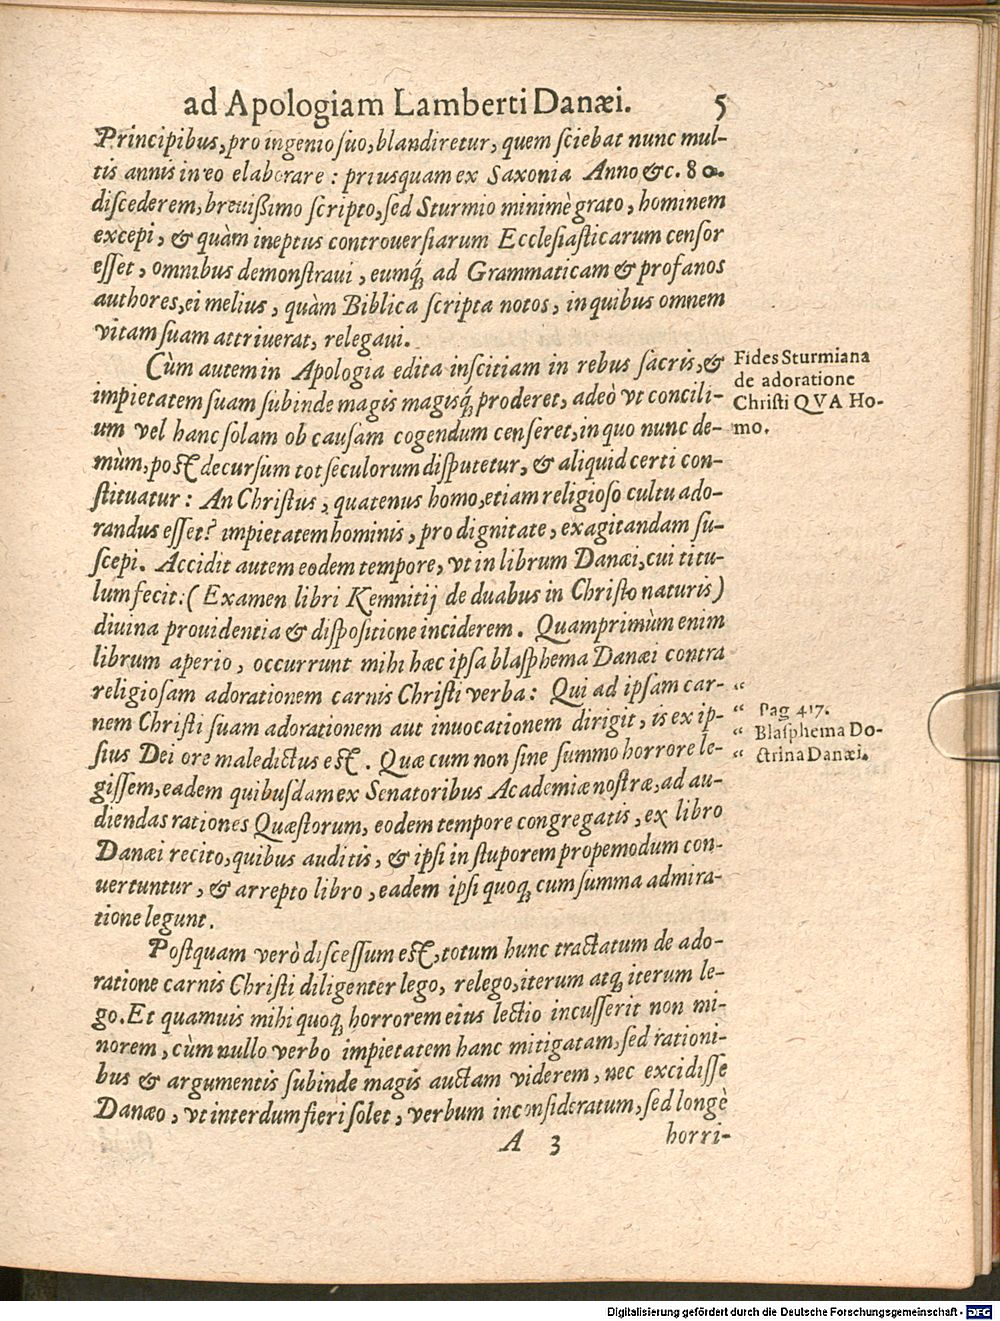 ad Apologiam Lamberti Danæi. 5
Principibus, pro ingenio ſuo, blandiretur, quem ſciebat nunc mul-
tis annis in eo elaborare: priusquam ex Saxonia Anno &c. 80.
diſcederem, breuißimo ſcripto, ſed Sturmio minimè grato, hominem
excepi, & quàm ineptus controuerſiarum Eccleſiaſticarum cenſor
eſſet, omnibus demonſtraui, eumq́ꝫ ad Grammaticam & profanos
authores, ei melius, quàm Biblica ſcripta notos, in quibus omnem
vitam ſuam attriuerat, relegaui.
Cùm autem in Apologia edita inſcitiam in rebus ſacris, &
impietatem ſuam ſubinde magis magisq́ꝫ proderet, adeò vt concili-
um vel hanc ſolam ob cauſam cogendum cenſeret, in quo nunc de-
mùm, poſt decurſum tot ſeculorum diſputetur, & aliquid certi con-
ſtituatur: An Chriſtus, quatenus homo, etiam religioſo cultu ado-
randus eſſet? impietatem hominis, pro dignitate, exagitandam ſu-
ſcepi. Accidit autem eodem tempore, vt in librum Danæi, cui titu-
lum fecit: (Examen libri Kemnitij de duabus in Chriſto naturis)
diuina prouidentia & diſpoſitione inciderem. Quamprimùm enim
librum aperio, occurrunt mihi hæc ipſa blaſphema Danæi contra
religioſam adorationem carnis Chriſti verba: Qui ad ipſam car-
nem Chriſti ſuam adorationem aut inuocationem dirigit, is ex ip-
ſius Dei ore maledictus eſt. Quæ cum non ſine ſummo horrore le-
giſſem, eadem quibuſdam ex Senatoribus Academiæ noſtræ, ad au-
diendas rationes Quæſtorum, eodem tempore congregatis, ex libro
Danæi recito, quibus auditis, & ipſi in ſtuporem propemodum con-
uertuntur, & arrepto libro, eadem ipſi quoqꝫ cum ſumma admira-
tione legunt.
Poſtquam verò diſceſſum eſt, totum hunc tractatum de ado-
ratione carnis Chriſti diligenter lego, relego, iterum atqꝫ iterum le-
go. Et quamuis mihi quoqꝫ horrorem eius lectio incuſſerit non mi-
norem, cùm nullo verbo impietatem hanc mitigatam, ſed rationi-
bus & argumentis ſubinde magis auctam viderem, nec excidiſſe
Danæo, vt interdum fieri ſolet, verbum inconſideratum, ſed longè
A 3 horri-
Fides Sturmiana
de adoratione
Chriſti QVA Ho-
mo.
“
“ Pag 417.
“ Blaſphema Do-
“ ctrina Danæi.
Digitalisierung gefördert durch die Deutsche Forschungsgemeinschaft - DFG